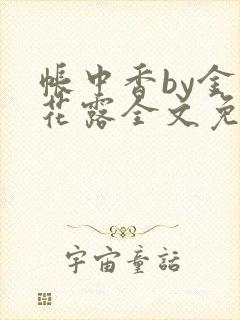 帳中香by金
花露全文免
宇宙童話